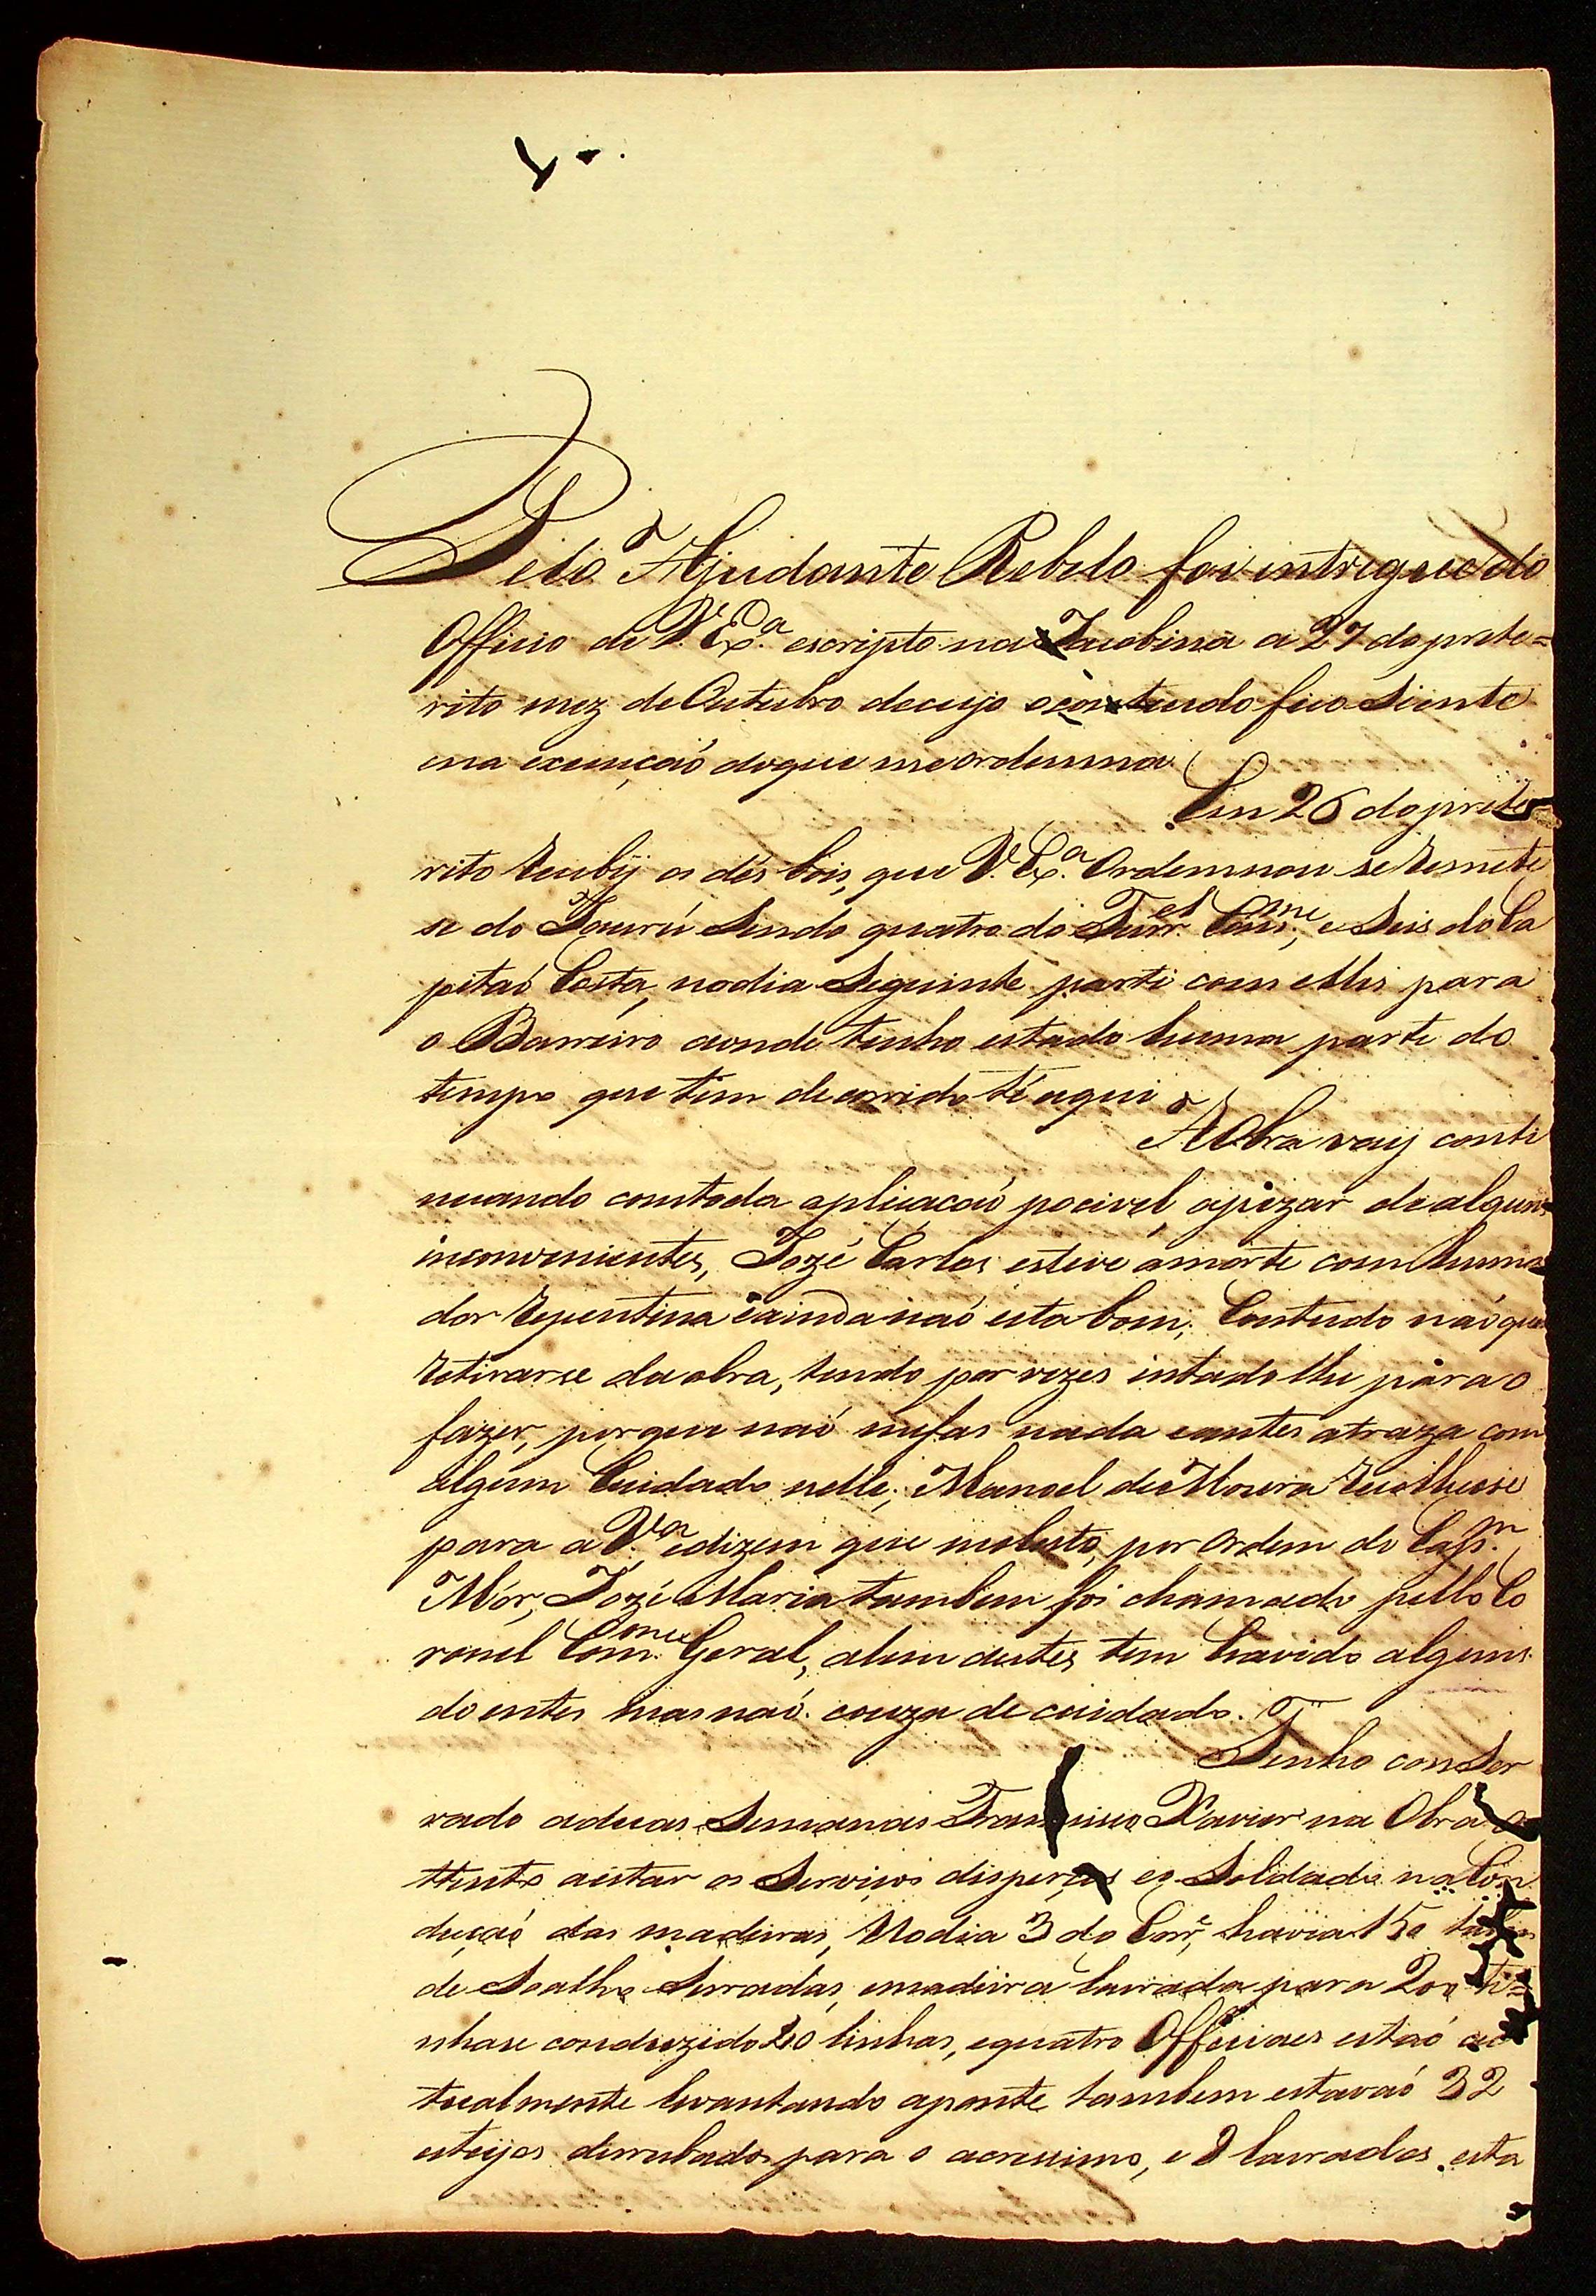 Pelo Ajudante Rebelo foi intregue do
Officio de V. Ex.ª escripto na Jacobina a 27 do prete=
rito mez de Outubro de cujo o contiudo fico Siente
e na execuçaó do que me ordemna.
Em 26 do prete=
rito Recebÿ os dés bois, que V. Ex.ª Ordemnou se Remete
se do Sendo quatro do e Seis do Ca
pitaó Costa, no dia Seguinte parti com elles para
o Barreiro aonde tenho estado huma parte do
tempo que tem decorrido té aqui
A Obra vaÿ conti
nuando com toda aplicacaó pocivel, apezar de alguns
inconvenientes, Jozé Carlos esteve a morte com huma
dor Repentina e ainda naó esta bom, Contudo naó quer
Retirarse da obra, tendo por vezes intado lhe para o
fazer, porque naó me fas nada e antes atraza com
algum Cuidado nelle; Manoel de Moura Recolheose
para a V.ª e dizem que molesto, por Ordem do Cap.m
Mór, Jozé Maria tambem foi chamado pello Co
ronel Com.e Geral, alem destes tem havido alguns
doentes mas naó couza de cuidado.
Tenho conSer
vado a duas Semanas Francisco Xavier na Obra
ttento a estar os Serviços disperços e o Soldado na Con
duçaó das madeiras, No dia 3 do Corr.e havia 150
de Soalho Serradas, e madeira lavrada para 200 ti=
nhase conduzido 20 linhas, e quatro Officiaes estaó ac
tualmente levantando a ponte tambem estavaó 32
esteijos derrubados para o acressimo, e 8 lavrados. esta